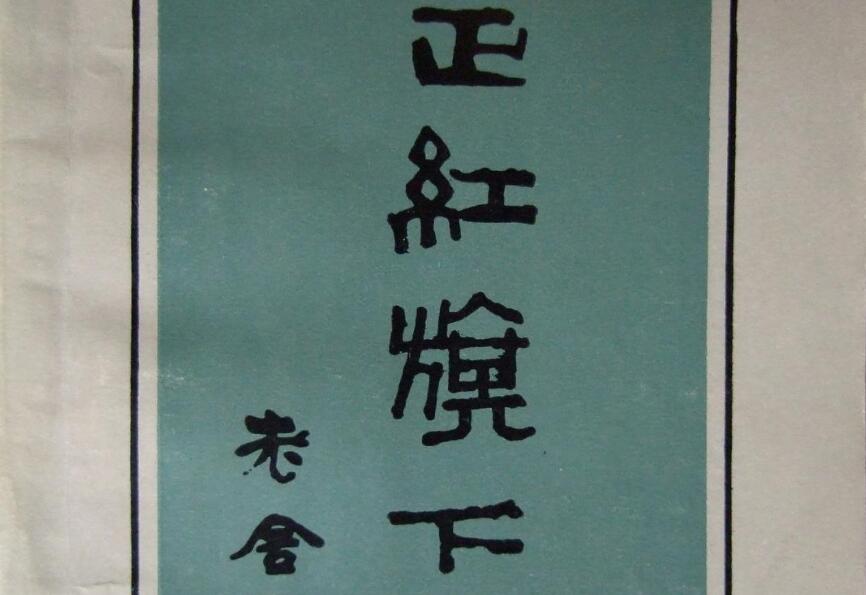 正紅旗下
老舍